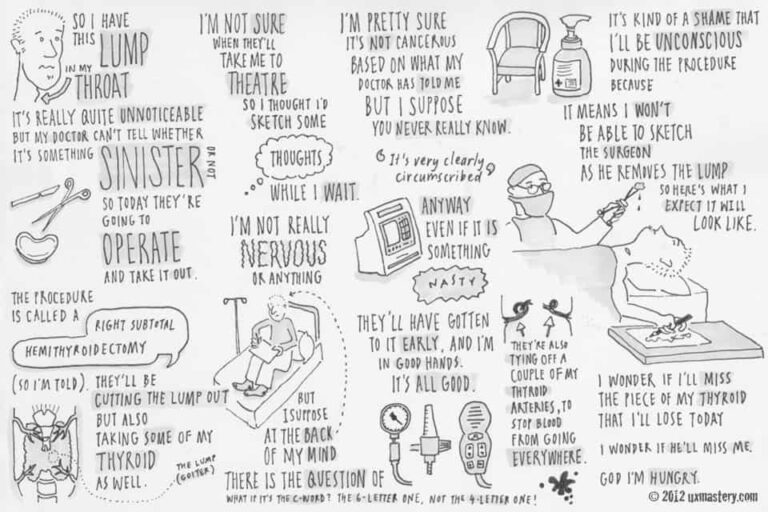 SO I HAVE
THIS LUMP
IN MY
THROAT
IT'S REALLY QUITE UNNOTICEABLE
BUT MY DOCTOR CAN'T TELL WHETHER
IT'S SOMETHING
SINISTER
OR NOT
SO TODAY THEY'RE
GOING TO
OPERATE
AND TAKE IT OUT.
THE PROCEDURE
IS CALLED A
RIGHT SUBTOTAL
HEMITHYROIDECTOMY
(SO I'M TOLD). THEY'LL BE
CUTTING THE LUMP OUT
BUT ALSO
TAKING SOME OF MY
THYROID
AS WELL.
THE LUMP
(GOITER)
I'M NOT SURE
WHEN THEY'LL
TAKE ME TO
THEATRE
SO I THOUGHT I'D
SKETCH SOME
THOUGHTS
WHILE I WAIT.
I'M NOT REALLY
NERVOUS
OR ANYTHING
BUT
I SUPPOSE
AT THE BACK
OF MY MIND
THERE IS THE QUESTION OF
WHAT IF IT'S THE C-WORD? THE 6-LETTER ONE, NOT THE 4-LETTER ONE!
I'M PRETTY SURE
IT'S NOT CANCEROUS
BASED ON WHAT MY
DOCTOR HAS TOLD ME
BUT I SUPPOSE
YOU NEVER REALLY KNOW.
"It's very clearly
circumscribed"
ANYWAY
EVEN IF IT IS
SOMETHING
NASTY
THEY'LL HAVE GOTTEN
TO IT EARLY, AND I'M
IN GOOD HANDS.
IT'S ALL GOOD.
THEY'RE ALSO
TYING OFF A
COUPLE OF MY
THYROID
ARTERIES, TO
STOP BLOOD
FROM GOING
EVERYWHERE.
IT'S KIND OF A SHAME THAT
I'LL BE UNCONSCIOUS
DURING THE PROCEDURE
BECAUSE
IT MEANS I WON'T
BE ABLE TO SKETCH
THE SURGEON
AS HE REMOVES THE LUMP
SO HERE'S WHAT I
EXPECT IT WILL
LOOK LIKE.
I WONDER IF I'LL MISS
THE PIECE OF MY THYROID
THAT I'LL LOSE TODAY
I WONDER IF HE'LL MISS ME.
GOD I'M HUNGRY.
© 2012 uxmastery.com